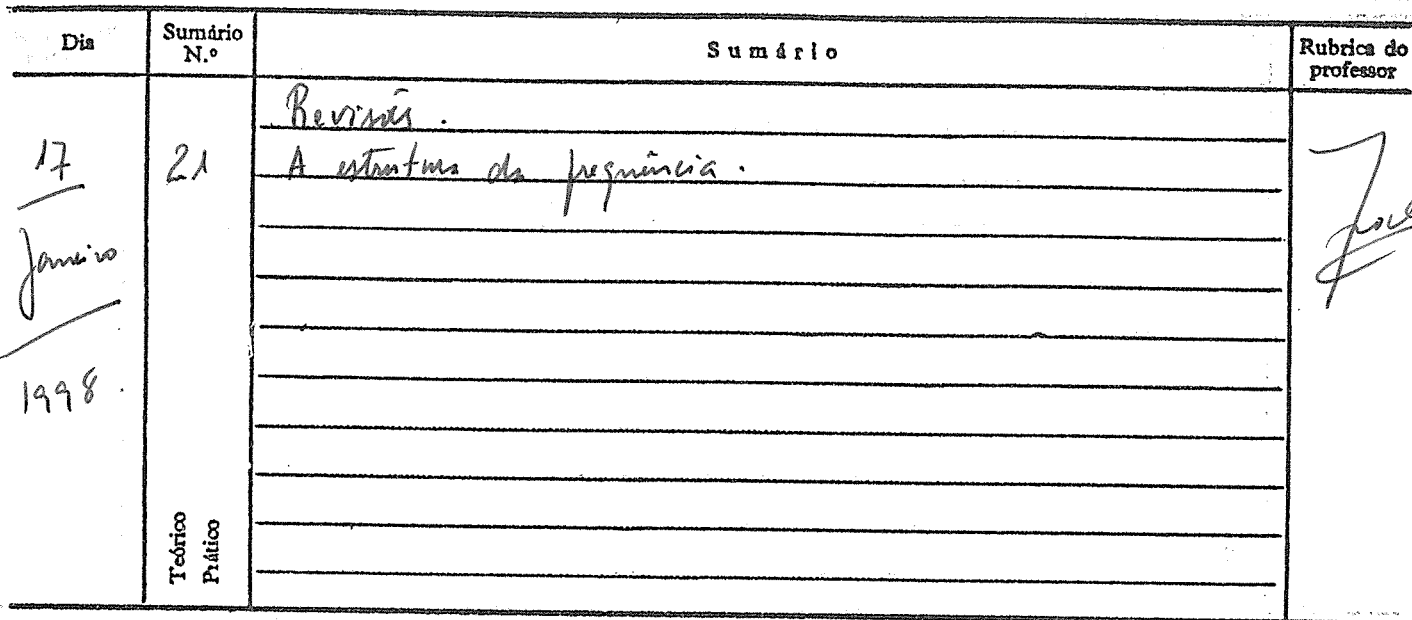 Dia
Sumário N.º
Sumário
Rubrica do professor
17
Janeiro
1998.
21
Teórico
Prático
Revisões.
A estrutura da frequência.